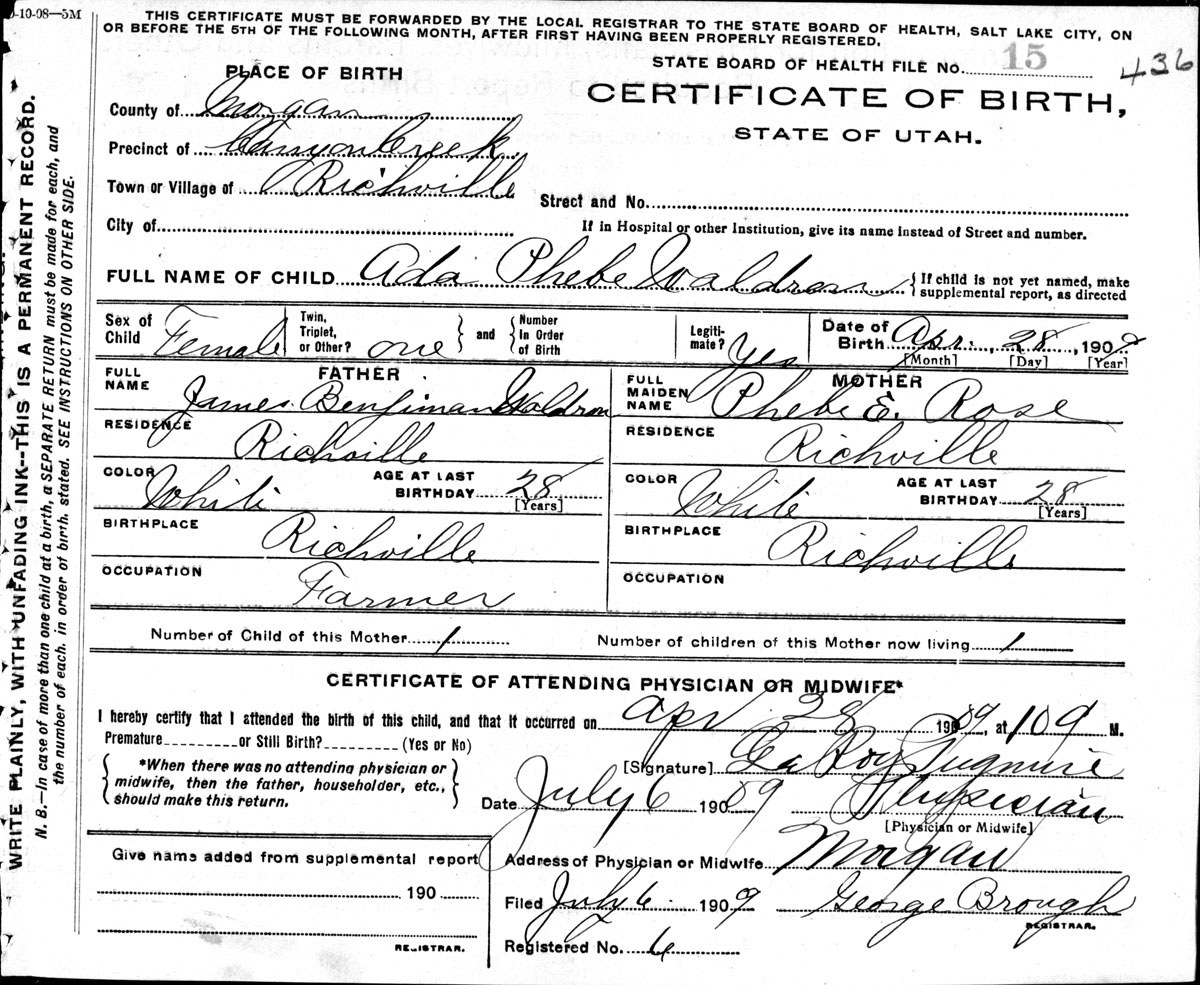 9-10-08—5M
THIS CERTIFICATE MUST BE FORWARDED BY THE LOCAL REGISTRAR TO THE STATE BOARD OF HEALTH, SALT LAKE CITY, ON
OR BEFORE THE 5TH OF THE FOLLOWING MONTH, AFTER FIRST HAVING BEEN PROPERLY REGISTERED.
STATE BOARD OF HEALTH FILE No. 15
436
CERTIFICATE OF BIRTH,
STATE OF UTAH.
PLACE OF BIRTH
County of Morgan
Precinct of Canyon Creek
Town or Village of Richville
Street and No.
City of
If in Hospital or other Institution, give its name instead of Street and number.
FULL NAME OF CHILD Ada Phebe Waldron {If child is not yet named, make
supplemental report, as directed
Sex of Child Female
Twin, Triplet, or Other? one } and { Number In Order of Birth
Legiti-mate? Yes
Date of Birth Apr. 28, 1909
[Month] [Day] [Year]
FATHER
FULL NAME James Benjiman Waldron
RESIDENCE Richville
COLOR White AGE AT LAST BIRTHDAY 28 [Years]
BIRTHPLACE Richville
OCCUPATION Farmer
MOTHER
FULL MAIDEN NAME Phebe E. Rose
RESIDENCE Richville
COLOR White AGE AT LAST BIRTHDAY 28 [Years]
BIRTHPLACE Richville
OCCUPATION
Number of Child of this Mother 1 Number of children of this Mother now living 1
CERTIFICATE OF ATTENDING PHYSICIAN OR MIDWIFE*
I hereby certify that I attended the birth of this child, and that it occurred on Apr. 28 1909, at 109 M.
Premature or Still Birth? (Yes or No)
{ *When there was no attending physician or
midwife, then the father, householder, etc.,
should make this return. }
[Signature] Le Roy Pugmire
Date July 6 1909 Physician
[Physician or Midwife]
Give name added from supplemental report
190
REGISTRAR.
Address of Physician or Midwife Morgan
Filed July 6 1909 George Brough
REGISTRAR.
Registered No. 6
WRITE PLAINLY, WITH UNFADING INK--THIS IS A PERMANENT RECORD.
N. B.—In case of more than one child at a birth, a SEPARATE RETURN must be made for each, and
the number of each, in order of birth, stated. SEE INSTRUCTIONS ON OTHER SIDE.